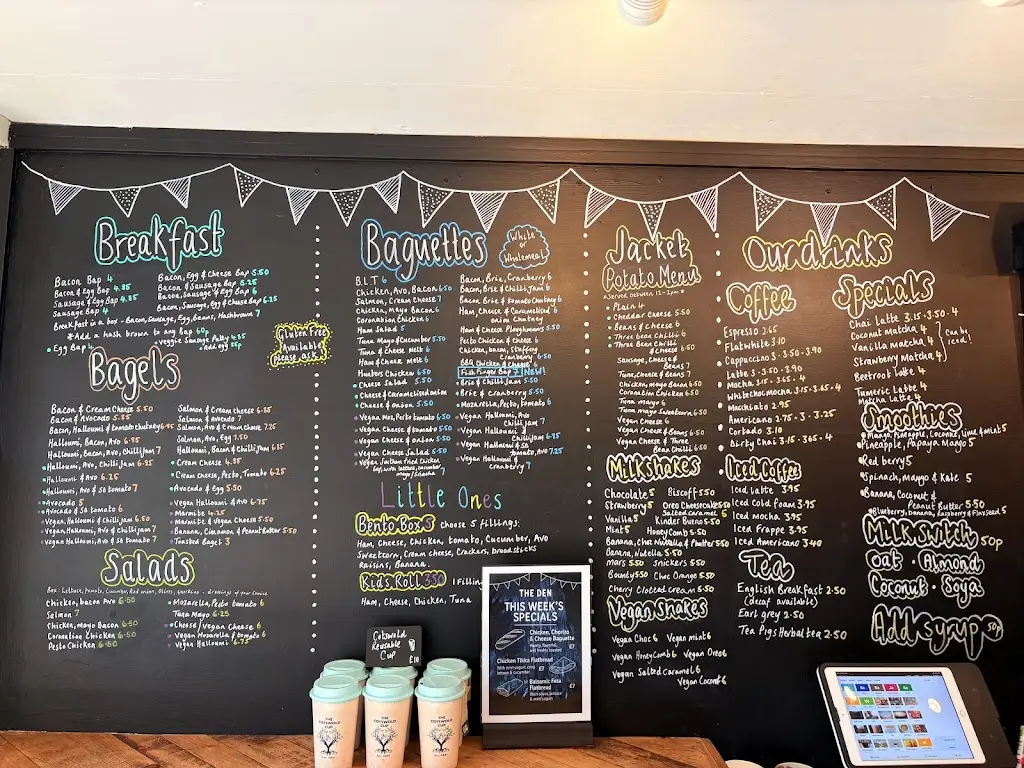 Breakfast
Bacon Bap 4
Bacon & Egg Bap 4.85
Sausage & Egg Bap 4.85
Sausage Bap 4
Bacon, Egg & Cheese Bap 5.50
Bacon & Sausage Bap 5.25
Bacon, Sausage & Egg Bap 6
Bacon, Sausage, Egg & Cheese Bap 6.25
Breakfast in a box - Bacon, Sausage, Egg, Beans, Hashbrown 7
*Add a hash brown to any Bap 60p
Egg Bap 4
Veggie Sausage Patty 4.85
add egg 85p
Gluten Free
Available
please ask
Bagels
Bacon & Cream Cheese 5.50
Bacon & Avocado 5.85
Bacon, Halloumi & tomato chutney 6.95
Halloumi, Bacon, Avo 6.85
Halloumi, Bacon, Avo, Chilli jam 7
Halloumi, Avo, Chilli jam 6.25
Halloumi & Avo 6.25
Halloumi, Avo & SD tomato 7
Avocado 5
Avocado & SD tomato 6
Vegan Halloumi & Chilli jam 6.50
Vegan Halloumi, Avo & chilli jam 7
Vegan Halloumi, Avo & SD tomato 7
Salmon & cream cheese 6.85
Salmon & Avocado 7
Salmon, Avo & Cream cheese 7.25
Salmon, Avo, Egg 7.50
Halloumi, Bacon & Chilli jam 6.85
Cream Cheese 4.85
Cream Cheese, Pesto, Tomato 6.25
Avocado & Egg 5.50
Vegan Halloumi & Avo 6.75
Marmite 4.25
Marmite & Vegan Cheese 5.50
Banana, Cinnamon & Peanut Butter 5.50
Toasted Bagel 3
Salads
Chicken, bacon Avo 6.50
Salmon 7
Chicken, Mayo Bacon 6.50
Coronation Chicken 6.50
Pesto Chicken 6.50
Mozzarella, Pesto tomato 6
Tuna Mayo 6.25
Cheese / Vegan Cheese 6
Vegan Mozzarella & tomato 6
Vegan Halloumi 6.75
Baguettes
White
or
Wholemeal
B.L.T 6
Chicken, Avo, Bacon 6.50
Salmon, Cream Cheese 7
Chicken, Mayo Bacon 6
Coronation Chicken 6
Ham Salad 5
Tuna Mayo & Cucumber 5.50
Tuna & Cheese melt 6
Ham & Cheese melt 6
Hunters Chicken 6.50
Cheese Salad 5.50
Cheese & Caramelised onion
Cheese & onion 5.50
Vegan Moz, Pesto tomato 6.50
Vegan Cheese & tomato 5.50
Vegan Cheese & onion 5.50
Vegan Cheese Salad 5.50
Bacon, Brie, Cranberry 6
Bacon, Brie & Chilli Jam 6
Bacon, Brie & tomato Chutney 6
Ham, Cheese & Caramelised
onion Chutney
Ham & Cheese Ploughmans 5.50
Pesto Chicken & Cheese 6
Chicken, bacon, stuffing
Cranberry 6.50
BBQ Chicken & Cheese 6
Fish Finger Bap 7 NEW!
Brie & Chilli Jam 5.50
Brie & Cranberry 5.50
Mozzarella, Pesto, tomato 6
Vegan Halloumi, Avo
chilli jam 7
Vegan Halloumi
Chilli jam 6.75
Vegan Halloumi & SD
tomato, Avo 7.25
Vegan Halloumi &
cranberry 7
Little Ones
Bento Box 5 choose 5 fillings:
Ham, Cheese, Chicken, tomato, Cucumber, Avo
Sweetcorn, Cream cheese, Crackers, breadsticks
Raisins, Banana.
Kids Roll 3.50 1 Filling
Ham, Cheese, Chicken, Tuna
Cotswold
Reusable
Cup
£10
THE
COTSWOLD
CUP
THE
COTSWOLD
CUP
THE
COTSWOLD
CUP
THE DEN
THIS WEEK'S
SPECIALS
Chicken, Chorizo
& Cheese Baguette
Chicken Tikka Flatbread
Balsamic Feta
Flatbread
Jacket
Potato Menu
*Served between 12-2pm*
Plain 4
Cheddar Cheese 5.50
Beans & Cheese 6
Three Bean Chilli 6
Three Bean Chilli
& Cheese 6.50
Sausage, Cheese &
Beans 7
Tuna, Cheese & Beans 7
Chicken, mayo Bacon 6.50
Coronation Chicken 6.50
Tuna mayo 6
Tuna mayo Sweetcorn 6.50
Vegan Cheese 6
Vegan Cheese & beans 6.50
Vegan Cheese & Three
Bean Chilli 6.50
Milkshakes
Chocolate 5
Strawberry 5
Vanilla 5
Mint 5
Biscoff 5.50
Oreo Cheesecake 5.50
Salted caramel 5
Kinder Bueno 5.50
HoneyComb 5
Banana, Choc Nutella & P butter 5.50
Banana, Nutella 5.50
Mars 5.50 Snickers 5.50
Bounty 5.50 Choc Orange 5.50
Cherry Clotted cream 5.50
Vegan Shakes
Vegan Choc 6 Vegan mint 6
Vegan HoneyComb 6 Vegan Oreo 6
Vegan Salted Caramel 6
Vegan Coconut 6
Our drinks
Coffee
Espresso 2.65
Flatwhite 3.10
Cappuccino 3 · 3.50 · 3.90
Latte 3 · 3.50 · 3.90
Mocha 3.15 · 3.65 · 4
White choc mocha 3.15 · 3.65 · 4
Macchiato 2.95
Americano 2.75 · 3 · 3.25
Cortado 3.10
Dirty Chai 3.15 · 3.65 · 4
Iced Coffee
Iced Latte 3.95
Iced Cold foam 3.95
Iced mocha 3.95
Iced Frappe 3.95
Iced Americano 3.40
Tea
English Breakfast 2.50
(decaf available)
Earl grey 2.50
Tea Pigs Herbal tea 2.50
Specials
Chai Latte 3.15 · 3.50 · 4
Coconut Matcha 4
Vanilla matcha 4
Strawberry Matcha 4
Can be
iced!
Beetroot Latte 4
Tumeric Latte 4
Matcha Latte 4
Smoothies
Mango, Pineapple, Coconut, Lime & mint 5
Pineapple, Papaya, Mango 5
Red berry 5
Spinach, Mango & Kale 5
Banana, Coconut &
Peanut Butter 5.50
Blueberry, banana, Raspberry & Flaxseed 5
Milk Switch 50p
Oat · Almond
Coconut · Soya
Add syrup 50p